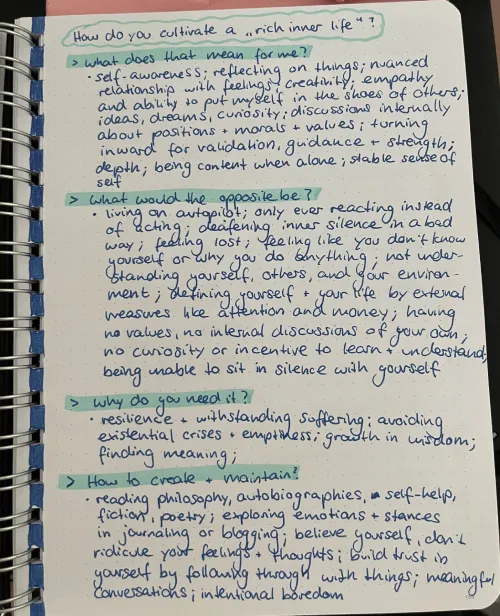 How do you cultivate a „rich inner life"?
> what does that mean for me?
• self-awareness; reflecting on things; nuanced
relationship with feelings; creativity; empathy
and ability to put myself in the shoes of others;
ideas, dreams, curiosity; discussions internally
about positions + morals + values; turning
inward for validation, guidance + strength;
depth; being content when alone; stable sense of
self
> what would the opposite be?
• living on autopilot; only ever reacting instead
of acting; deafening inner silence in a bad
way; feeling lost; feeling like you don't know
yourself or why you do anything; not under-
standing yourself, others, and your environ-
ment; defining yourself + your life by external
measures like attention and money; having
no values, no internal discussions of your own;
no curiosity or incentive to learn + understand;
being unable to sit in silence with yourself
> why do you need it?
• resilience + withstanding suffering; avoiding
existential crises + emptiness; growth in wisdom;
finding meaning;
> How to create + maintain?
• reading philosophy, autobiographies, self-help,
fiction, poetry; exploring emotions + stances
in journaling or blogging; believe yourself, don't
ridicule your feelings + thoughts; build trust in
yourself by following through with things; meaningful
conversations; intentional boredom